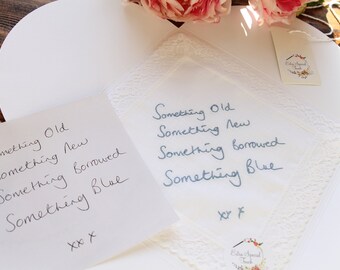 Something Old
Something New
Something Borrowed
Something Blue
xx x
Something Old
Something New
Something Borrowed
Something Blue
xx x